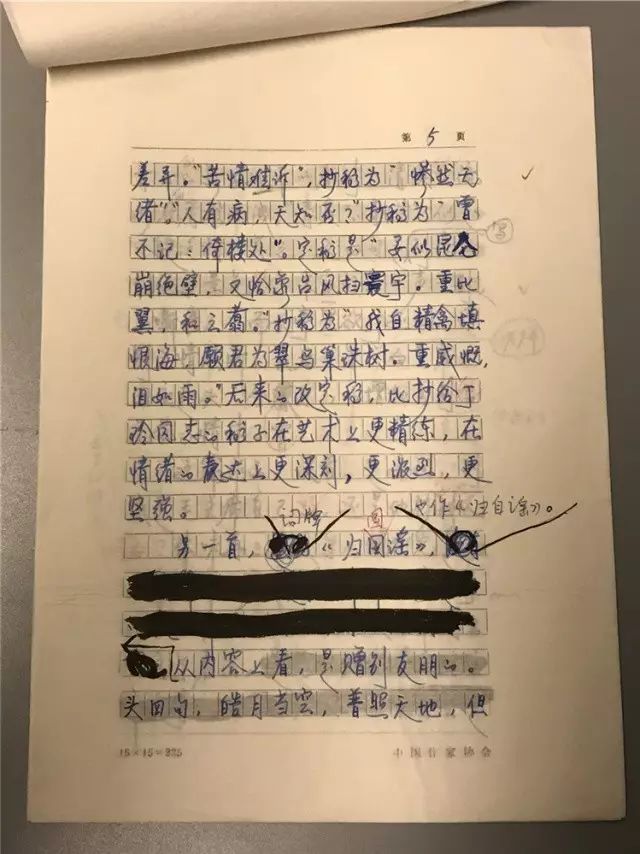 第 5 页
差异。"苦情难诉",抄稿为"惨然无
绪"。"人有病,天知否?"抄稿为"曾
不记:倚楼处"。定稿是"要似昆仑
崩绝壁,又恰像台风扫寰宇。重比
翼,和云翥。"抄稿为"我自精禽填
恨海,愿君为翠鸟巢珠树。重感慨,
泪如雨。"后来的改定稿,比抄给丁
玲同志的稿子在艺术上更精练,在
情绪的表达上更深刻,更激烈,更
坚强。
词牌 回 也作《归自谣》。
另一首,《归国谣》,
从内容上看,是赠别友朋的。
头四句,皓月当空,普照天地,但
15×15=225 中国作家协会